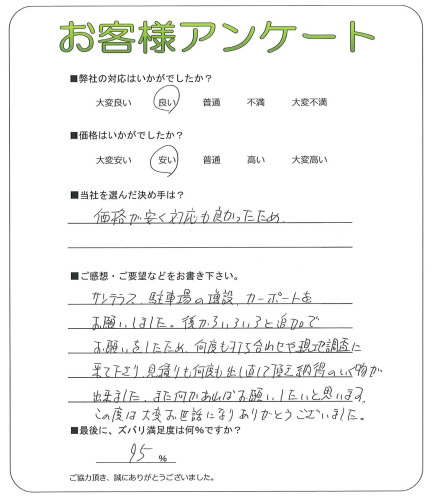 お客様アンケート
■弊社の対応はいかがでしたか？
大変良い 良い 普通 不満 大変不満
■価格はいかがでしたか？
大変安い 安い 普通 高い 大変高い
■当社を選んだ決め手は？
価格が安く対応も良かったため
■ご感想・ご要望などをお書き下さい。
サンテラス、駐車場の増設、カーポートを
お願いしました。後からいろいろと追加で
お願いをしたため、何度も打ち合わせや現地調査に
来て下さり、見積りも何度も出し直して頂き納得のいく物が
出来ました。また何かあればお願いしたいと思います。
この度は大変お世話になりありがとうございました。
■最後に、ズバリ満足度は何％ですか？
95 ％
ご協力頂き、誠にありがとうございました。